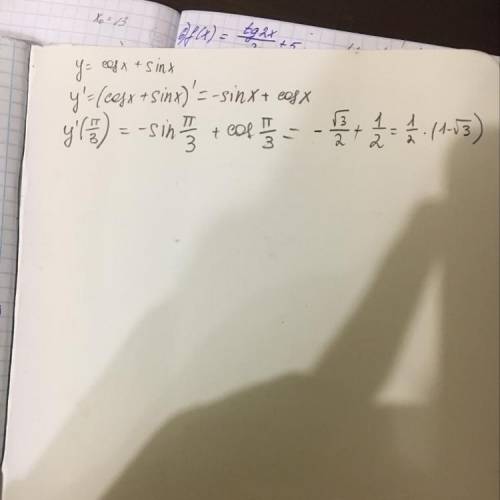 x₀ = 13
f(x) = tg2x/2 + 5
y = cosx + sinx
y' = (cosx + sinx)' = -sinx + cosx
y'(π/3) = -sin π/3 + cos π/3 = - √3/2 + 1/2 = 1/2 · (1-√3)